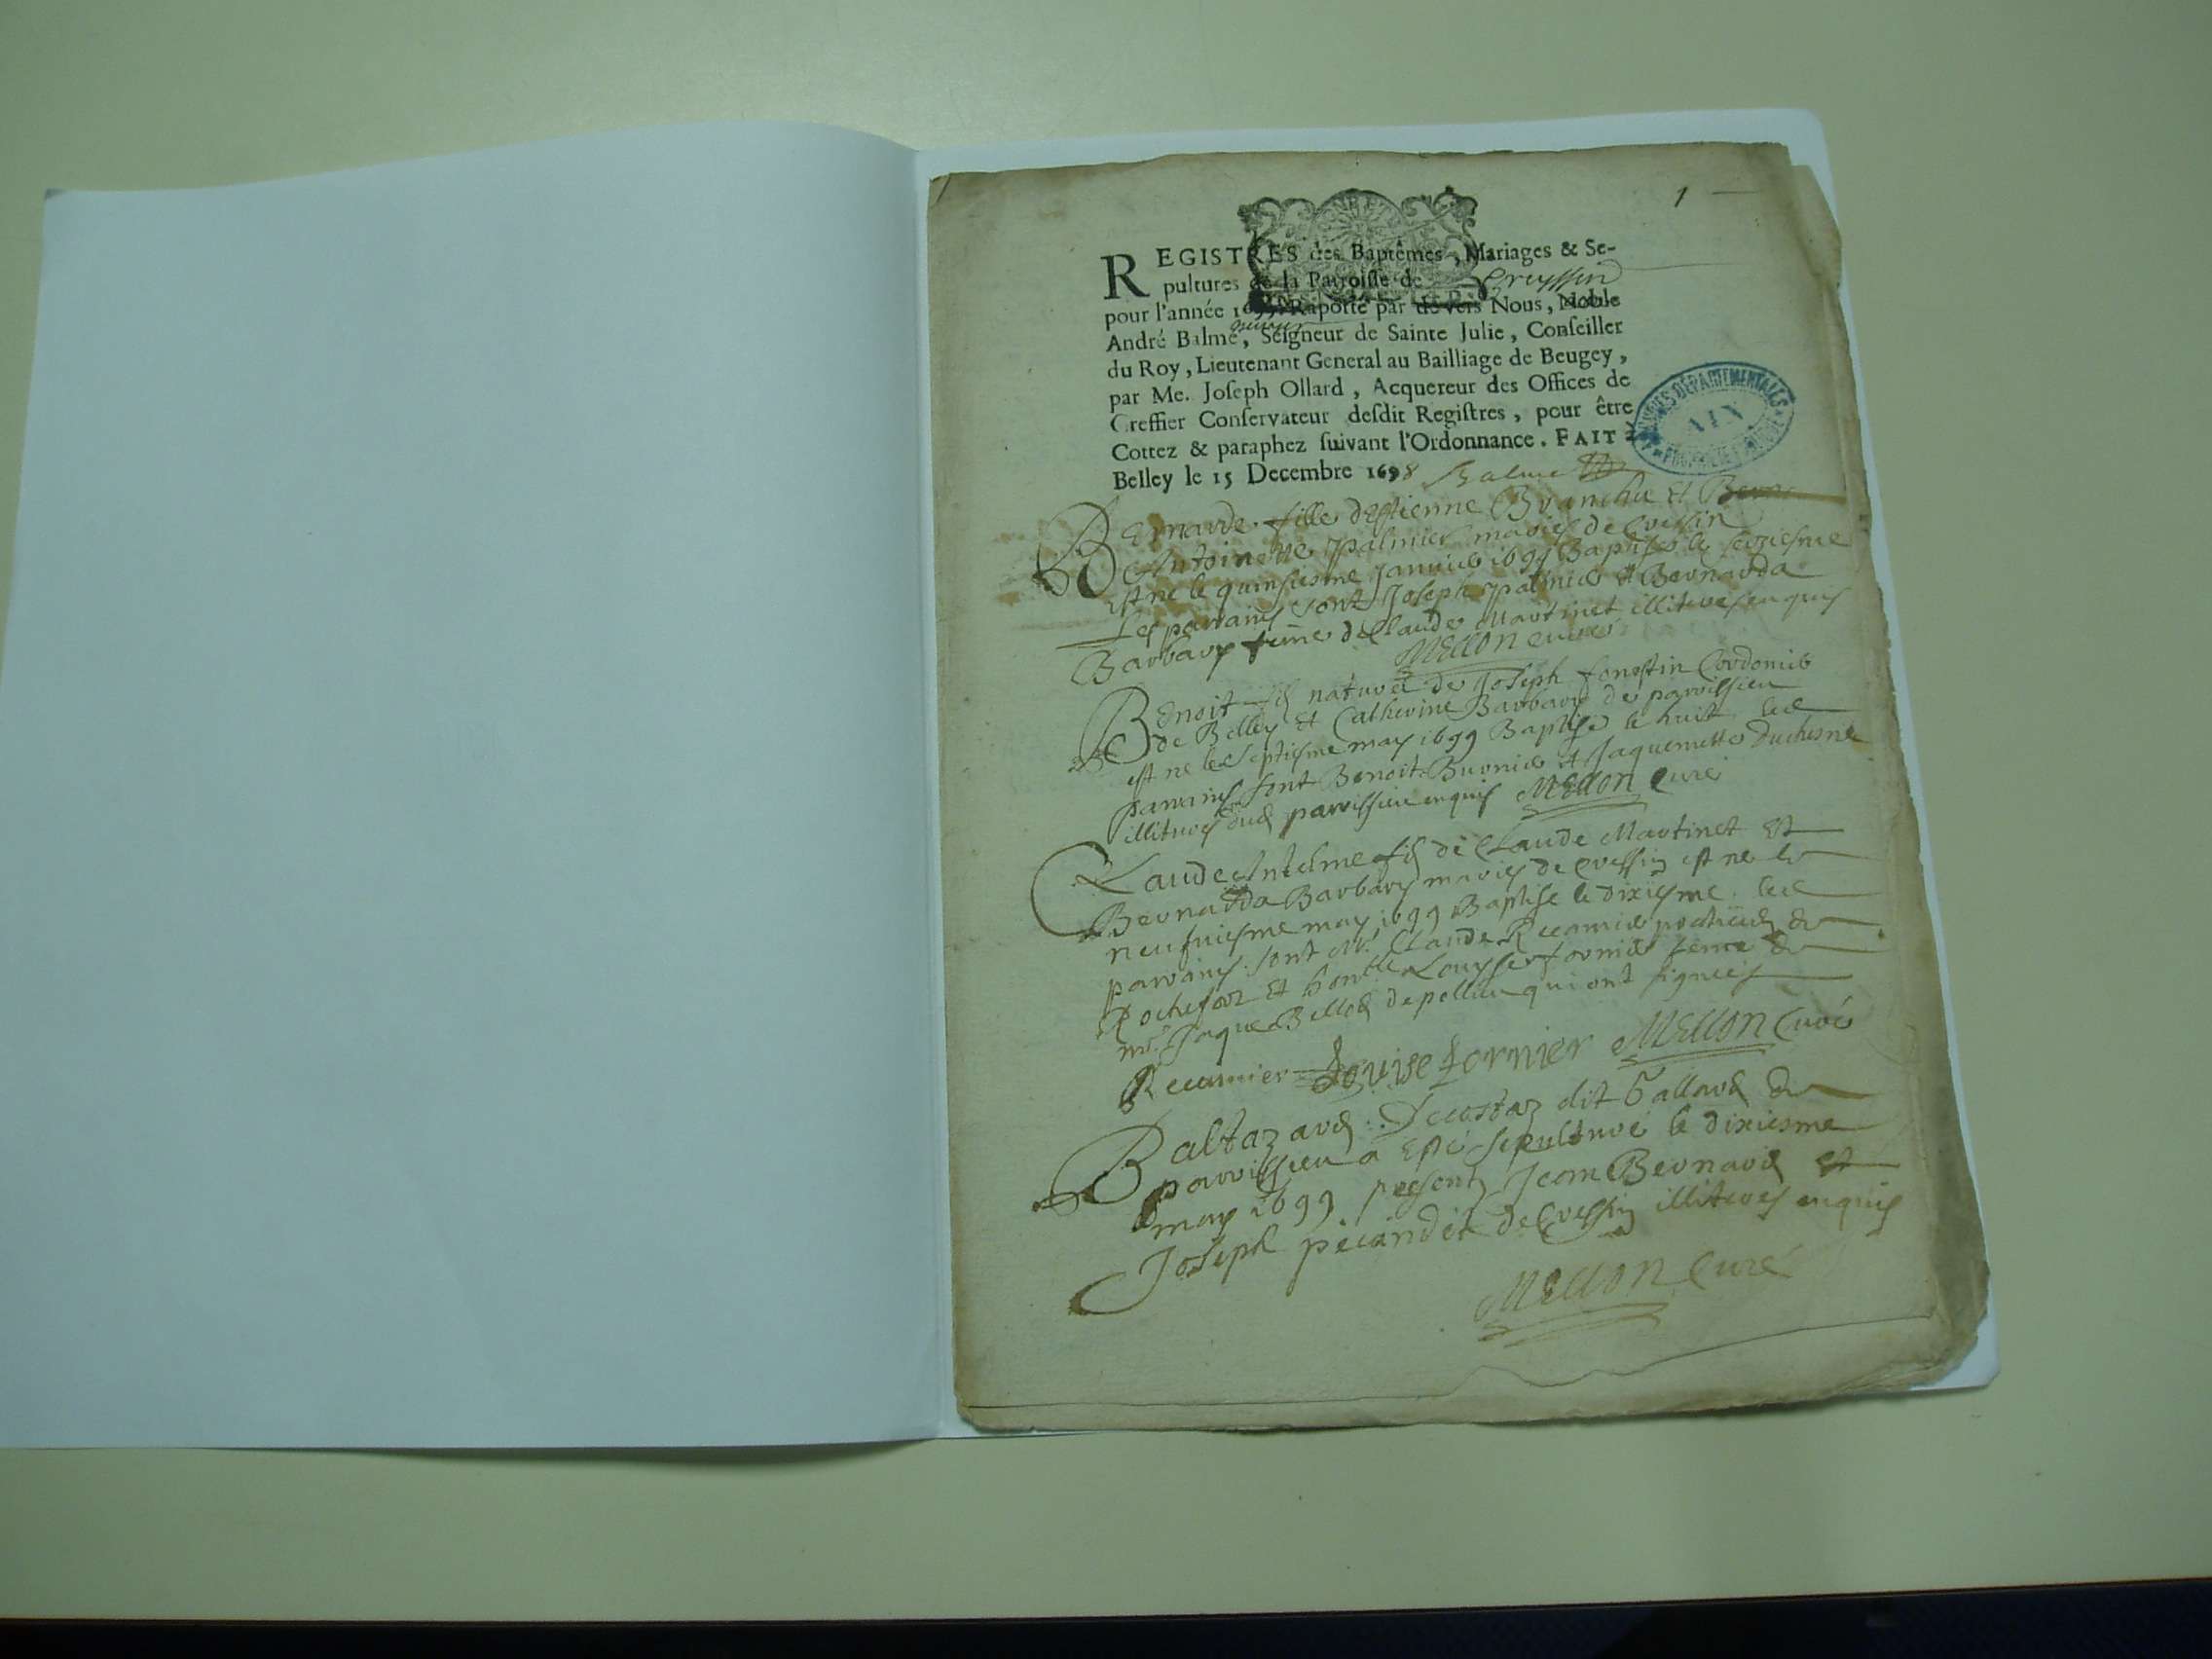 1
REGISTRES des Baptêmes, Mariages & Se-
pultures de la Parroisse de Cressin
pour l'année 1699. Raporté par devers Nous, Noble
André Balme, Seigneur de Sainte Julie, Conseiller
du Roy, Lieutenant General au Bailliage de Beugey,
par Me. Joseph Ollard, Acquereur des Offices de
Greffier Conservateur desdit Registres, pour être
Cottez & paraphez suivant l'Ordonnance. FAIT à
Belley le 15 Decembre 1698 Balme
ARCHIVES DEPARTEMENTALES
AIN
Bernarde fille destienne Branche et
Antoinette palmier maries de Cressin
est ne le quinsiesme Janvier 1699 Baptise le seziesme
Les parrains sont Joseph palmier et Bernarda
Barbary feme de Claude Martinet illiteres enquis
Mellon curé
Benoit fils naturel de Joseph Cordonier
de Belley et Catherine Barbary de parrissieu
est ne le septiesme may 1699 Baptise le huit les
parrains sont Benoit Burnier et Jaquemette Duchesne
illiteres dud parrissieu enquis Mellon Curé
Claude Antelme fils de Claude Martinet et
Bernarda Barbary maries de Cressin est ne le
neufviesme may 1699 Baptise le dixiesme les
parrains sont Mr. Claude Recamier de
Rochefort et honble Louyse fornier feme de
mr. Jaque Billod de pollieu qui ont signés
Recamier Louise fornier Mellon Curé
Baltazard Decostaz dit Gallard de
parrissieu a esté sepulturé le dixiesme
may 1699 presents Jean Bernard et
Joseph pecandet de Cressin illiteres enquis
Mellon Curé